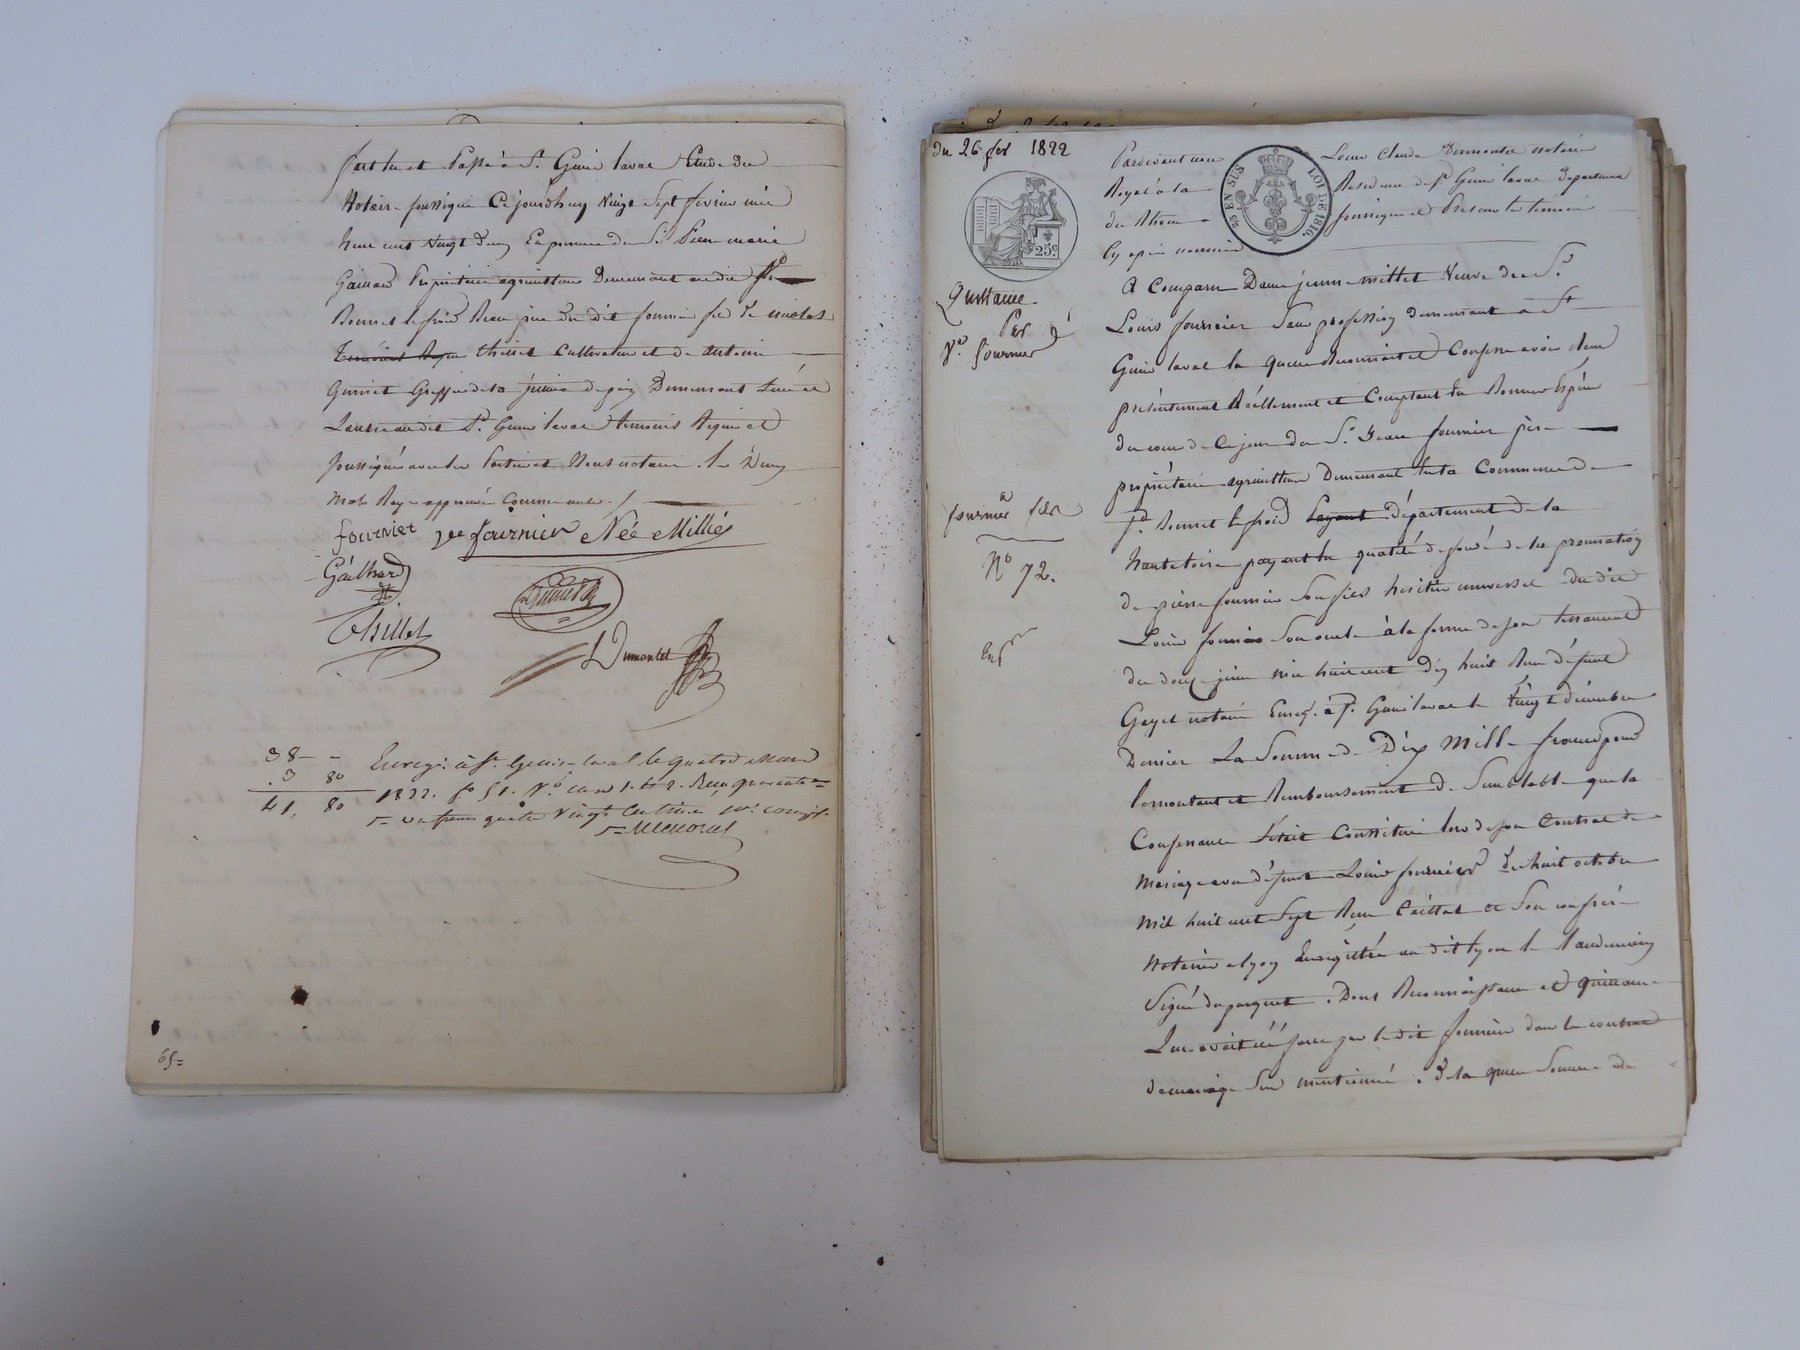 fait lu et Passé à St. Genis laval Etude du
Notaire soussigné Ce jourdhuy Vingt Sept février mil
huit cent Vingt deux En présence de Sr. Pierre marie
Gaillard Propriétaire agriculteur Demeurant au dit St.
Bonnet le froid Beau père du dit fournier fils de nicolas
Thillet Cultivateur et de antoine
Guinet Greffier de la justice de paix Demeurant tous
au dit St. Genis laval témoins Requis et
soussignés avec les Parties et Nous notaire. les Deux
mots Rayés approuvés comme nuls. /
fournier ve fournier Née Millié
Gailhard
Thillet
LDumontet
38 - -
3 80
41, 80
Enregé. à St. Genis-laval le quatre Mars
1822. fo. 51. Vo. cases 1. et 2. Reçu quarante =
= un francs quatre vingts centimes, 10e. compris.
65=
du 26 fer 1822
Quittance
Par
Ve. fournier
à
fournier père
No 72.
Exp
25c
25 EN SUS
LOI DE 1816.
Pardevant nous Louis Claude Dumontet notaire
Royal à la Résidence de St. Genis laval Département
du Rhône soussigné et Présens les témoins
cy après nommés
A Comparu Dame jeanne millet Veuve de Sr.
Louis fournier Sans profession demeurant à St
Genis laval la quelle Reconnait et Confesse avoir
présentement Réellement et Comptant En Bonnes Espèces
du cours de Ce jour du Sr. jean fournier père
propriétaire agriculteur Demeurant En la Commune de
St. Bonnet le froid Layant département de la
haute loire payant En qualité de fondé de la procuration
de pierre fournier Son fils héritier universel du dit
Louis fournier Son oncle à la forme de son testament
du douze juin mil huit cent dix huit Reçu défunt
Gayet notaire Enreg. à St. Genis laval le Vingt décembre
Dernier La Somme de Dix Mille francs pour
le montant et Remboursement de Semblable que la
Confessante S'était Constituée lors de son Contrat de
Mariage avec défunt Louis fournier du huit octobre
mil huit cent Sept Reçu Caillat et Son confrère
Notaires à lyon Enregistrée au dit lyon le
Signé Duparquet. Dont Reconnaissance et quittance
Lui avait été faite par le dit fournier dans le contrat
de mariage Sus mentionné. de la quelle Somme de